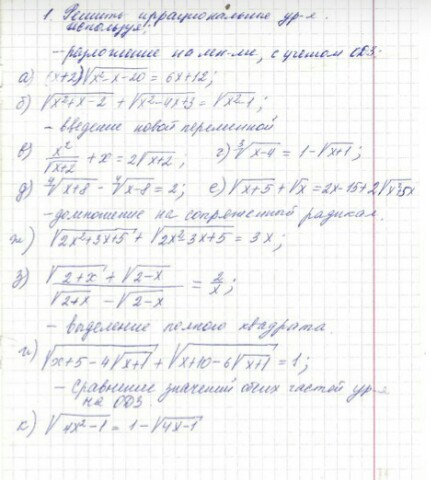 1. Решить иррациональные ур-я
используя:
- разложение на мн-ли, с учетом ОДЗ:
а) (x+2)√x²-x-20 = 6x+12;
б) √x²+x-2 + √x²-4x+3 = √x²-1;
- введение новой переменной
в) x²/√x+2 + x = 2√x+2; г) ∛x-4 = 1-√x+1;
д) ∜x+8 - ∜x-8 = 2; е) √x+5 + √x = 2x-15+2√x²+5x
- домножение на сопряженный радикал.
ж) √2x²+3x+5 + √2x²-3x+5 = 3x;
з) √2+x + √2-x / √2+x - √2-x = 2/x;
- выделение полного квадрата
и) √x+5-4√x+1 + √x+10-6√x+1 = 1;
- Сравнение значений обеих частей ур-я
на ОДЗ.
к) √4x²-1 = 1-√4x-1